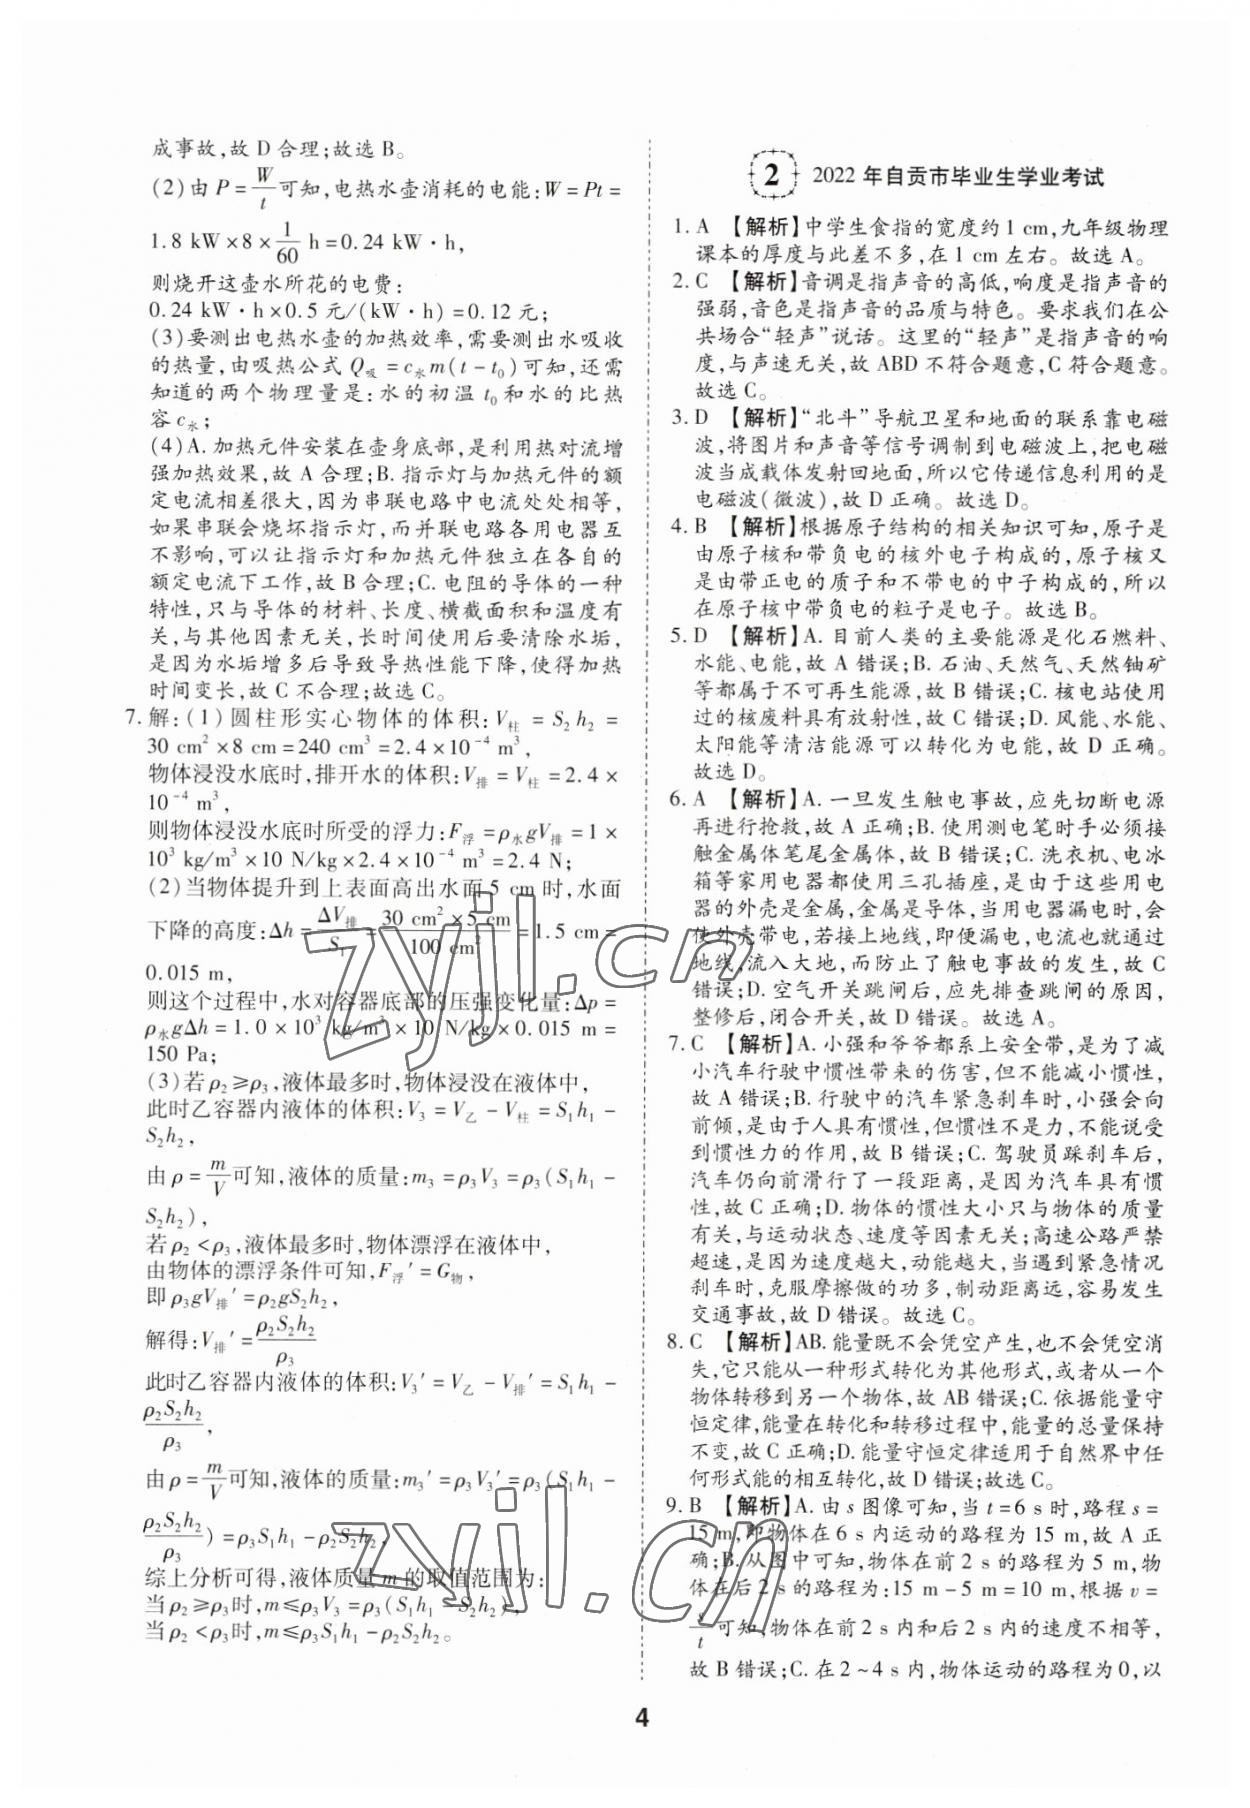 成事故,故 D 合理;故选 B。
(2)由 P=W/t可知,电热水壶消耗的电能:W=Pt=
1.8 kW×8×1/60 h=0.24 kW·h,
则烧开这壶水所花的电费:
0.24 kW·h×0.5 元/(kW·h)=0.12 元;
(3)要测出电热水壶的加热效率,需要测出水吸收
的热量,由吸热公式 Q吸=c水m(t-t₀)可知,还需
知道的两个物理量是:水的初温 t₀和水的比热
容 c水;
(4)A. 加热元件安装在壶身底部,是利用热对流增
强加热效果,故 A 合理;B. 指示灯与加热元件的额
定电流相差很大,因为串联电路中电流处处相等,
如果串联会烧坏指示灯,而并联电路各用电器互
不影响,可以让指示灯和加热元件独立在各自的
额定电流下工作,故 B 合理;C. 电阻的导体的一种
特性,只与导体的材料、长度、横截面积和温度有
关,与其他因素无关,长时间使用后要清除水垢,
是因为水垢增多后导致导热性能下降,使得加热
时间变长,故 C 不合理;故选 C。
7. 解:(1)圆柱形实心物体的体积:V柱=S₂h₂=
30 cm²×8 cm=240 cm³=2.4×10⁻⁴ m³,
物体浸没水底时,排开水的体积:V排=V柱=2.4×
10⁻⁴ m³,
则物体浸没水底时所受的浮力:F浮=ρ水gV排=1×
10³ kg/m³×10 N/kg×2.4×10⁻⁴ m³=2.4 N;
(2)当物体提升到上表面高出水面 5 cm 时,水面
下降的高度:Δh=ΔV排/S₁=30 cm²×5 cm/100 cm²=1.5 cm=
0.015 m,
则这个过程中,水对容器底部的压强变化量:Δp=
ρ水gΔh=1.0×10³ kg/m³×10 N/kg×0.015 m=
150 Pa;
(3)若 ρ₂≥ρ₃,液体最多时,物体浸没在液体中,
此时乙容器内液体的体积:V₃=V乙-V柱=S₁h₁-
S₂h₂,
由 ρ=m/V可知,液体的质量:m₃=ρ₃V₃=ρ₃(S₁h₁-
S₂h₂),
若 ρ₂<ρ₃,液体最多时,物体漂浮在液体中,
由物体的漂浮条件可知,F浮′=G物,
即 ρ₃gV排′=ρ₂gS₂h₂,
解得:V排′=ρ₂S₂h₂/ρ₃
此时乙容器内液体的体积:V₃′=V乙-V排′=S₁h₁-
ρ₂S₂h₂/ρ₃,
由 ρ=m/V可知,液体的质量:m₃′=ρ₃V₃′=ρ₃(S₁h₁-
ρ₂S₂h₂/ρ₃)=ρ₃S₁h₁-ρ₂S₂h₂,
综上分析可得,液体质量 m 的取值范围为:
当 ρ₂≥ρ₃时,m≤ρ₃V₃=ρ₃(S₁h₁-S₂h₂),
当 ρ₂<ρ₃时,m≤ρ₃S₁h₁-ρ₂S₂h₂。
2 2022 年自贡市毕业生学业考试
1. A 【解析】中学生食指的宽度约 1 cm,九年级物理
课本的厚度与此差不多,在 1 cm 左右。故选 A。
2. C 【解析】音调是指声音的高低,响度是指声音的
强弱,音色是指声音的品质与特色。要求我们在公
共场合“轻声”说话。这里的“轻声”是指声音的响
度,与声速无关,故 ABD 不符合题意,C 符合题意。
故选 C。
3. D 【解析】“北斗”导航卫星和地面的联系靠电磁
波,将图片和声音等信号调制到电磁波上,把电磁
波当成载体发射回地面,所以它传递信息利用的是
电磁波(微波),故 D 正确。故选 D。
4. B 【解析】根据原子结构的相关知识可知,原子是
由原子核和带负电的核外电子构成的,原子核又
是由带正电的质子和不带电的中子构成的,所以
在原子核中带负电的粒子是电子。故选 B。
5. D 【解析】A. 目前人类的主要能源是化石燃料、
水能、电能,故 A 错误;B. 石油、天然气、天然铀矿
等都属于不可再生能源,故 B 错误;C. 核电站使用
过的核废料具有放射性,故 C 错误;D. 风能、水能、
太阳能等清洁能源可以转化为电能,故 D 正确。
故选 D。
6. A 【解析】A. 一旦发生触电事故,应先切断电源
再进行抢救,故 A 正确;B. 使用测电笔时手必须接
触金属体笔尾金属体,故 B 错误;C. 洗衣机、电冰
箱等家用电器都使用三孔插座,是由于这些用电
器的外壳是金属,金属是导体,当用电器漏电时,会
使外壳带电,若接上地线,即便漏电,电流也就通过
地线,流入大地,而防止了触电事故的发生,故 C
错误;D. 空气开关跳闸后,应先排查跳闸的原因,
整修后,闭合开关,故 D 错误。故选 A。
7. C 【解析】A. 小强和爷爷都系上安全带,是为了减
小汽车行驶中惯性带来的伤害,但不能减小惯性,
故 A 错误;B. 行驶中的汽车紧急刹车时,小强会向
前倾,是由于人具有惯性,但惯性不是力,不能说受
到惯性力的作用,故 B 错误;C. 驾驶员踩刹车后,
汽车仍向前滑行了一段距离,是因为汽车具有惯
性,故 C 正确;D. 物体的惯性大小只与物体的质量
有关,与运动状态、速度等因素无关;高速公路严禁
超速,是因为速度越大,动能越大,当遇到紧急情况
刹车时,克服摩擦做的功多,制动距离远,容易发生
交通事故,故 D 错误。故选 C。
8. C 【解析】AB. 能量既不会凭空产生,也不会凭空消
失,它只能从一种形式转化为其他形式,或者从一个
物体转移到另一个物体,故 AB 错误;C. 依据能量守
恒定律,能量在转化和转移过程中,能量的总量保持
不变,故 C 正确;D. 能量守恒定律适用于自然界中任
何形式能的相互转化,故 D 错误;故选 C。
9. B 【解析】A. 由 s 图像可知,当 t=6 s 时,路程 s=
15 m,即物体在 6 s 内运动的路程为 15 m,故 A 正
确;B. 从图中可知,物体在前 2 s 的路程为 5 m,物
体在后 2 s 的路程为:15 m-5 m=10 m,根据 v=
s/t可知,物体在前 2 s 内和后 2 s 内的速度不相等,
故 B 错误;C. 在 2~4 s 内,物体运动的路程为 0,以
4
zyjl.cn
zyjl.cn